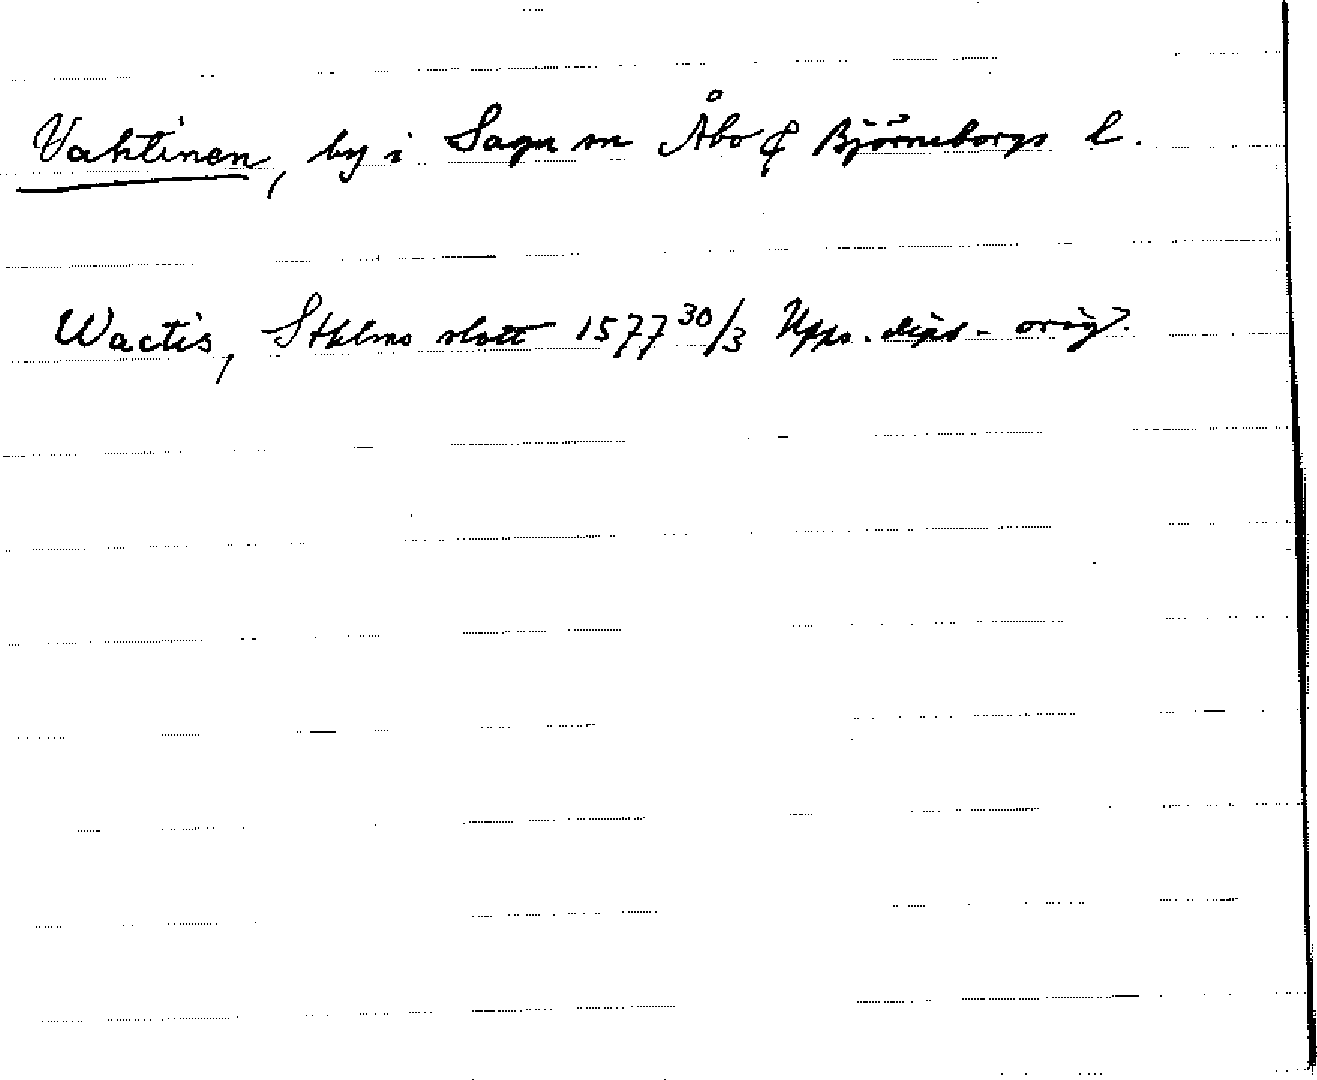 Vahtinen, by i Sagu sn Åbo & Björneborgs l.
Wactis, Sthlms slott 1577 30/3 Upps. dipl - orig.